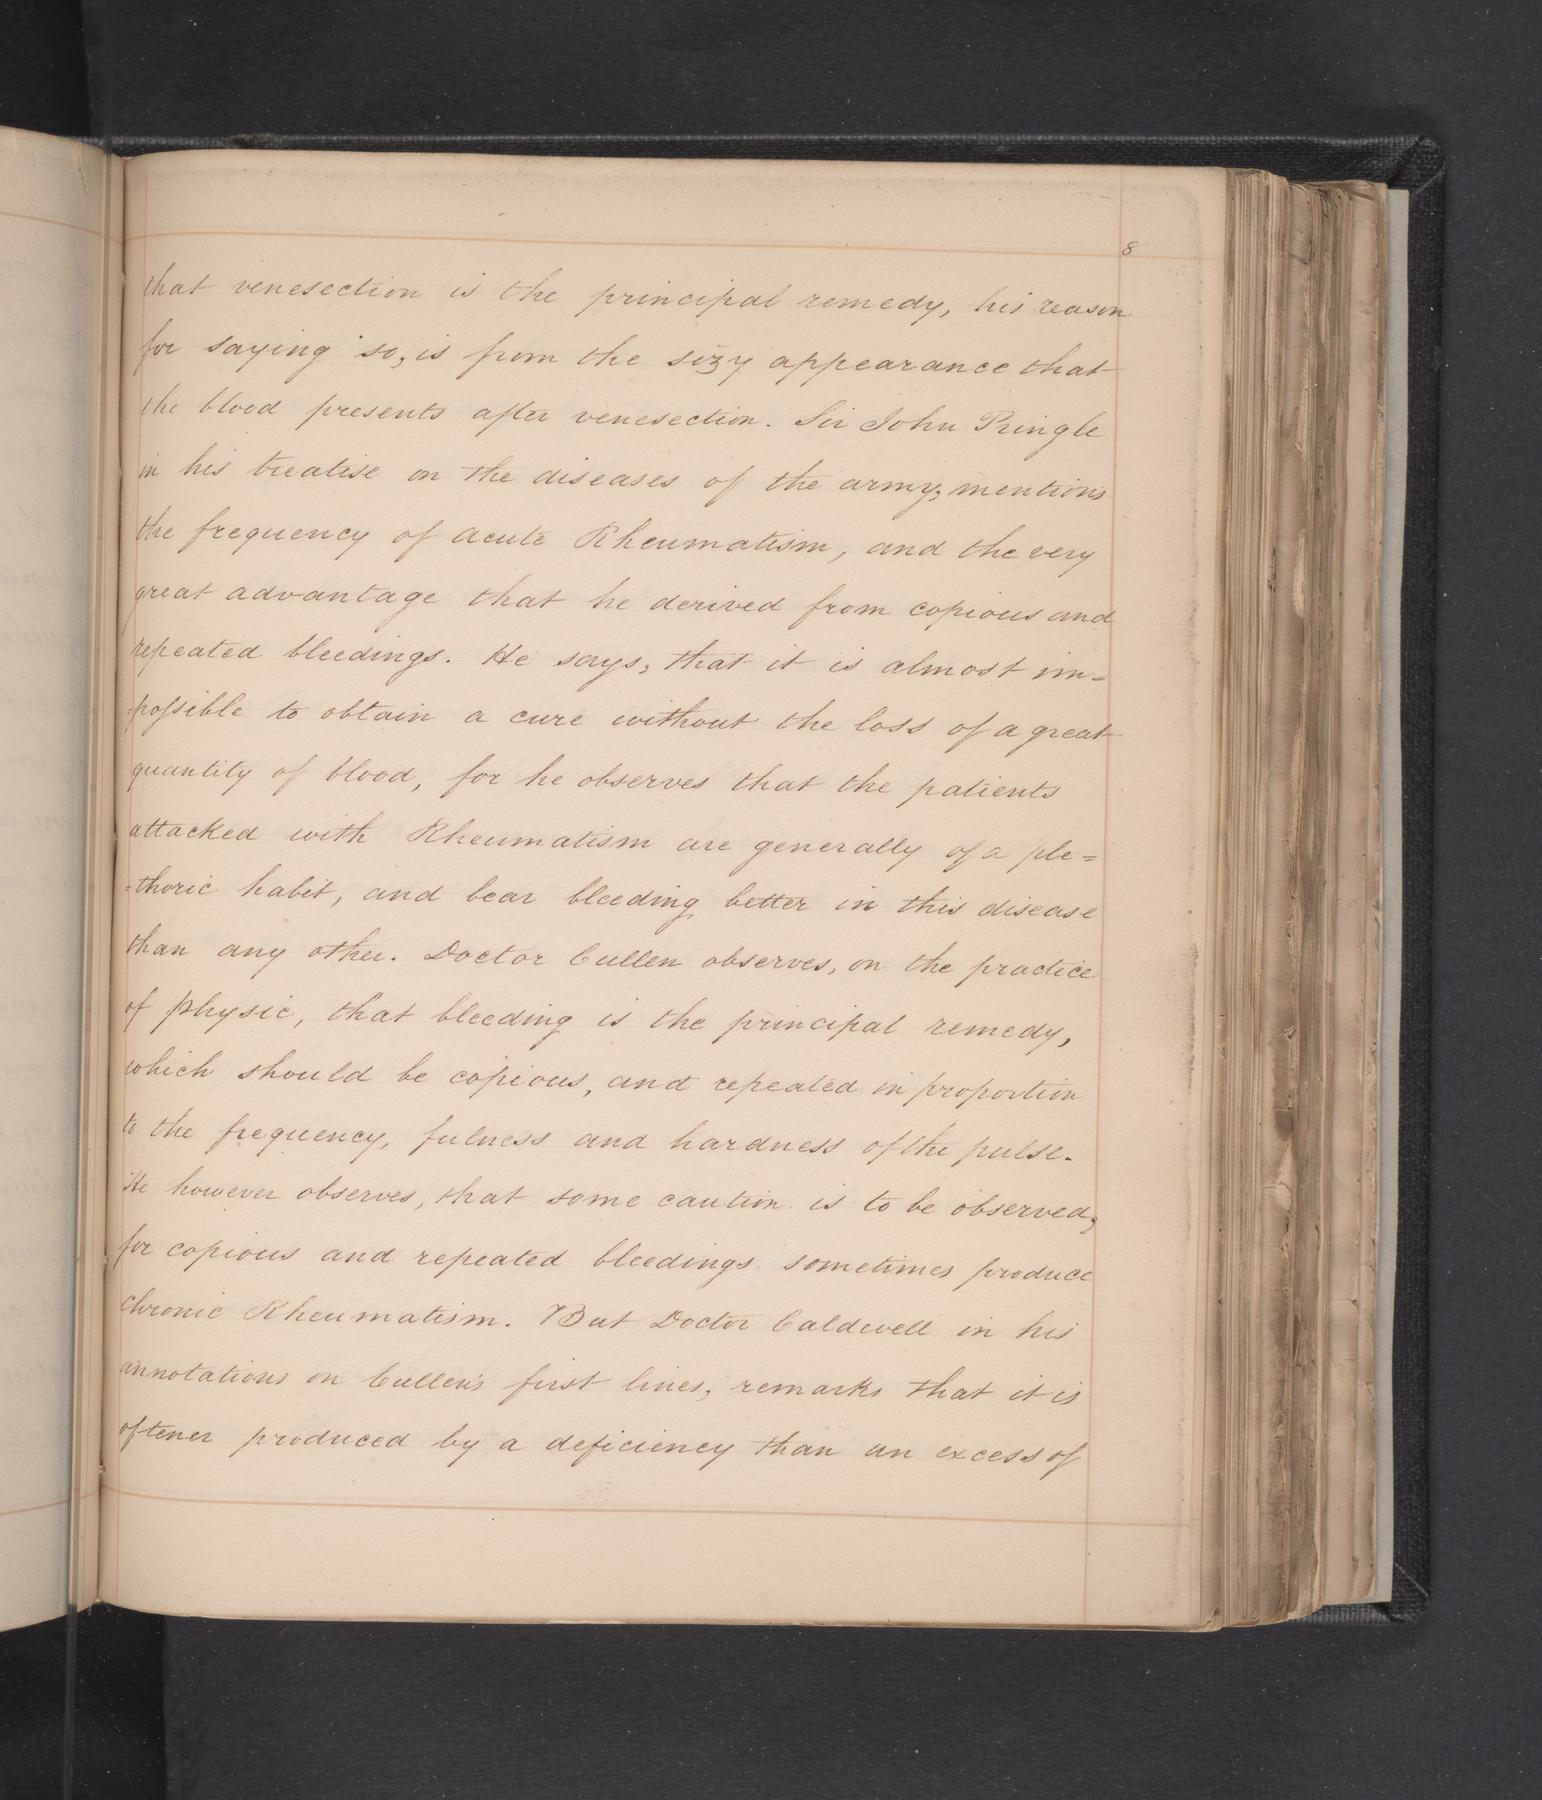 8
that venesection is the principal remedy, his reason
for saying so, is from the sizy appearance that
the blood presents after venesection. Sir John Pringle
in his treatise on the diseases of the army, mentions
the frequency of acute Rheumatism, and the very
great advantage that he derived from copious and
repeated bleedings. He says, that it is almost im=
=possible to obtain a cure without the loss of a great
quantity of blood, for he observes that the patients
attacked with Rheumatism are generally of a ple=
=thoric habit, and bear bleeding better in this disease
than any other. Doctor Cullen observes, on the practice
of physic, that bleeding is the principal remedy,
which should be copious, and repeated in proportion
to the frequency, fulness and hardness of the pulse.
He however observes, that some caution is to be observed,
for copious and repeated bleedings sometimes produce
chronic Rheumatism. But Doctor Caldwell in his
annotations on Cullen's first lines, remarks that it is
oftener produced by a deficiency than an excess of